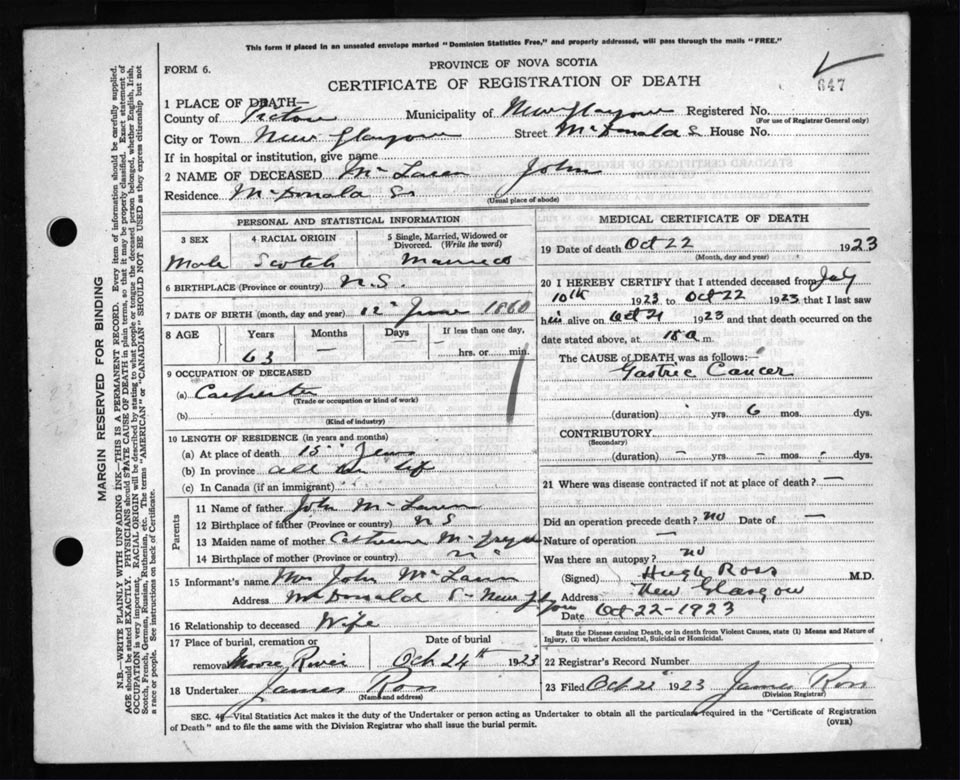 This form if placed in an unsealed envelope marked "Dominion Statistics Free," and properly addressed, will pass through the mails "FREE."
PROVINCE OF NOVA SCOTIA
FORM 6.
CERTIFICATE OF REGISTRATION OF DEATH
647
1 PLACE OF DEATH
County of Pictou Municipality of New Glasgow Registered No.
(For use of Registrar General only)
City or Town New Glasgow Street McDonald S House No.
If in hospital or institution, give name
2 NAME OF DECEASED McLaren John
Residence McDonald St
(Usual place of abode)
PERSONAL AND STATISTICAL INFORMATION
3 SEX 4 RACIAL ORIGIN 5 Single, Married, Widowed or Divorced. (Write the word)
Male Scotch Married
6 BIRTHPLACE (Province or country) N.S.
7 DATE OF BIRTH (month, day and year) 12th June 1860
8 AGE Years Months Days If less than one day,
63 — — hrs. or min.
9 OCCUPATION OF DECEASED
(a) Carpenter
(Trade or occupation or kind of work)
(b)
(Kind of industry)
10 LENGTH OF RESIDENCE (in years and months)
(a) At place of death 15 Years
(b) In province all his life
(c) In Canada (if an immigrant)
Parents
11 Name of father John McLaren
12 Birthplace of father (Province or country) N S
13 Maiden name of mother Catherine
14 Birthplace of mother (Province or country)
15 Informant's name Mrs John McLaren
Address McDonald S- New Glasgow
16 Relationship to deceased Wife
17 Place of burial, cremation or removal Date of burial
River Oct 24th 1923
18 Undertaker James Ross
(Name and address)
MEDICAL CERTIFICATE OF DEATH
19 Date of death Oct 22 1923
(Month, day and year)
20 I HEREBY CERTIFY that I attended deceased from July
10th 1923 to Oct 22 1923 that I last saw
him alive on Oct 21 1923 and that death occurred on the
date stated above, at m.
The CAUSE of DEATH was as follows:—
Gastric Cancer
(duration) yrs. 6 mos. dys.
CONTRIBUTORY
(Secondary)
(duration) - yrs. - mos. - dys.
21 Where was disease contracted if not at place of death? —
Did an operation precede death? no Date of —
Nature of operation —
Was there an autopsy? no
(Signed) Hugh Ross M.D.
Address New Glasgow
Date Oct-22-1923
State the Disease causing Death, or in death from Violent Causes, state (1) Means and Nature of
Injury, (2) whether Accidental, Suicidal or Homicidal.
22 Registrar's Record Number
23 Filed Oct 22 1923 James Ross
(Division Registrar)
SEC. 4—Vital Statistics Act makes it the duty of the Undertaker or person acting as Undertaker to obtain all the particulars required in the "Certificate of Registration
of Death" and to file the same with the Division Registrar who shall issue the burial permit.
(OVER)
MARGIN RESERVED FOR BINDING
N.B.—WRITE PLAINLY WITH UNFADING INK—THIS IS A PERMANENT RECORD. Every item of information should be carefully supplied.
AGE should be stated EXACTLY. PHYSICIANS should STATE CAUSE OF DEATH in plain terms, so that it may be properly classified. Exact statement of
OCCUPATION is very important. RACIAL ORIGIN will be described by stating to what people or tongue the deceased person belonged, whether English, Irish,
Scotch, French, German, Russian, Ruthenian, etc. The terms "AMERICAN" or "CANADIAN" SHOULD NOT BE USED as they express citizenship but not
a race or people. See instructions on back of Certificate.